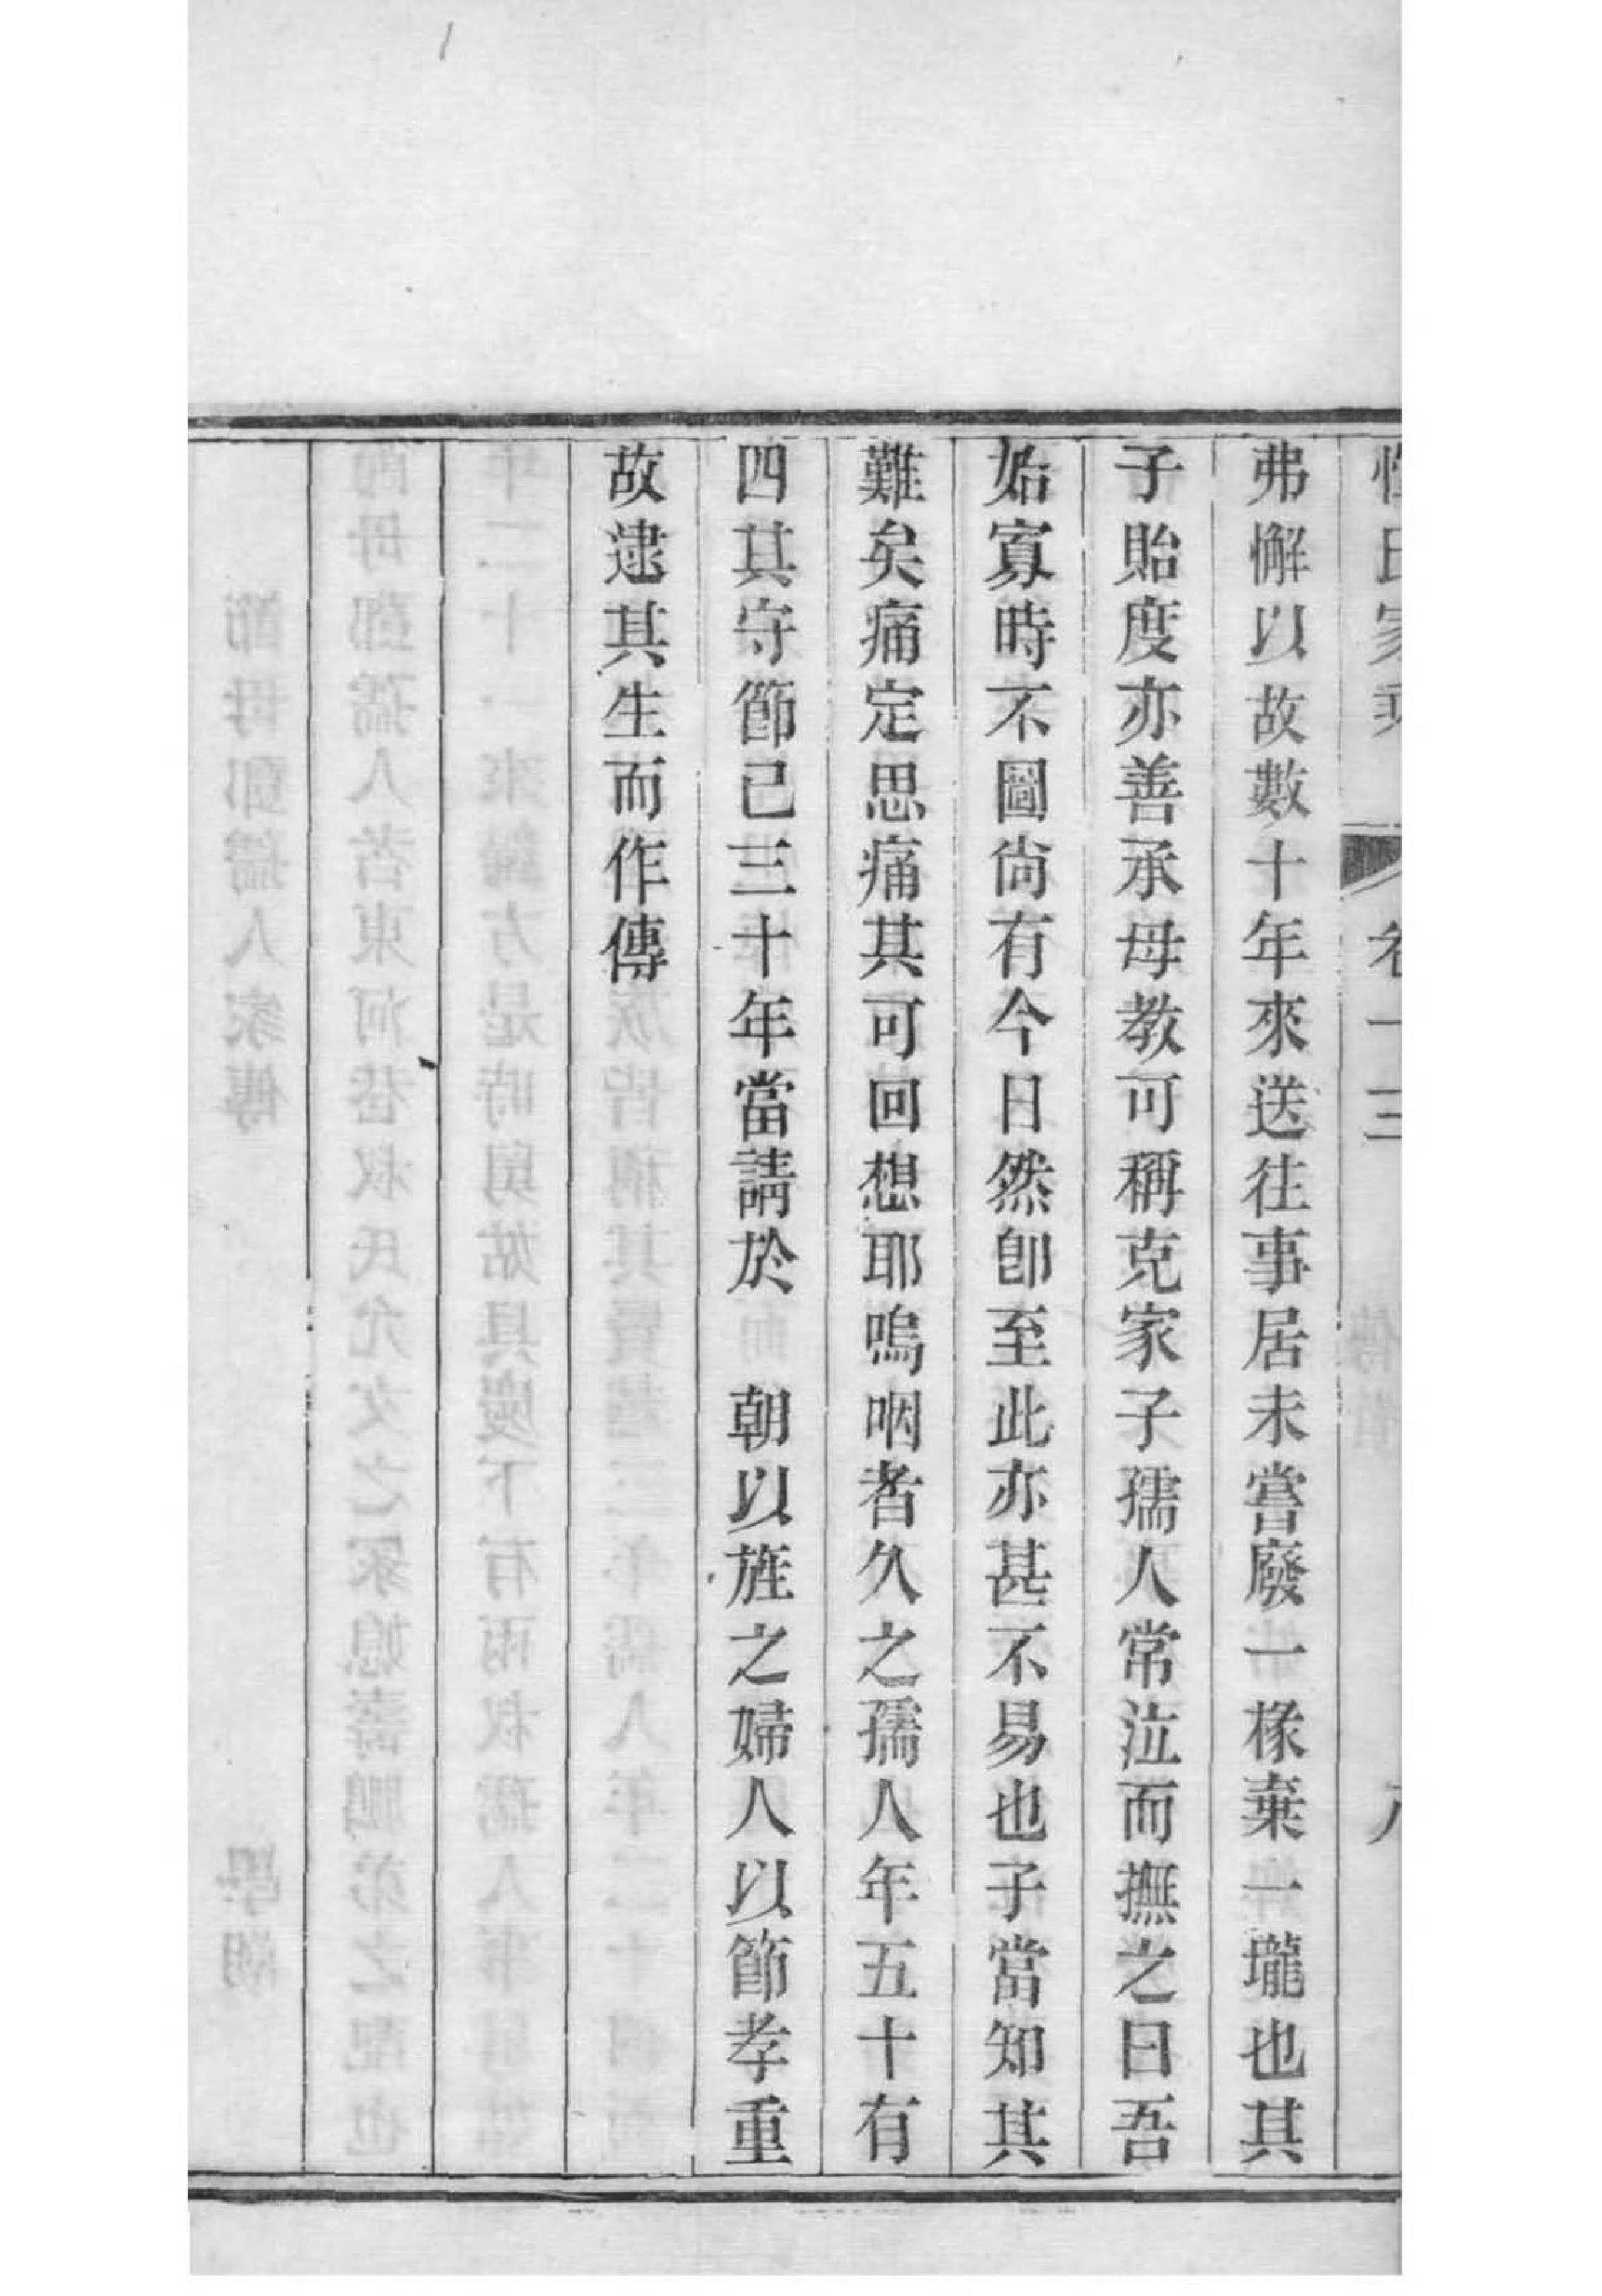 氏家乘 卷十三
弗懈以故數十年來送往事居未嘗廢一椽棄一壠也其
子貽度亦善承母教可稱克家子孺人常泣而撫之曰吾
始寡時不圖尙有今日然卽至此亦甚不易也子當知其
難矣痛定思痛其可回想耶嗚咽者久之孺人年五十有
四其守節已三十年當請於 朝以旌之婦人以節孝重
故逮其生而作傳